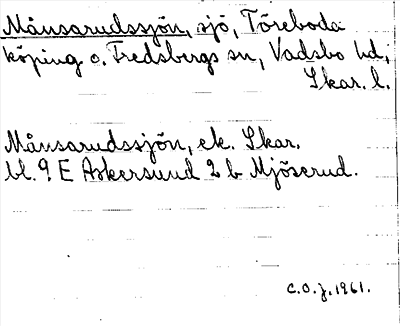 Månsarudssjön, sjö, Töreboda
köping o. Fredsbergs sn, Vadsbo hd,
Skar. l.
Månsarudssjön, ek. Skar.
bl. 9 E Askersund 2 b Mjöserud.
C.O.J. 1961.